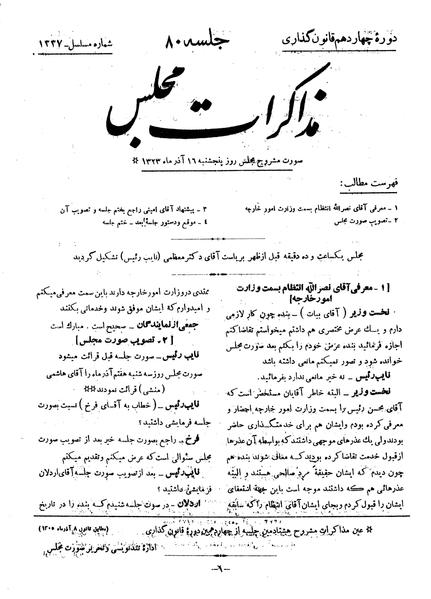 دورهٔ چهاردهم قانون گذاری
جلسه ۸۰
شماره مسلسل - ۱۳۳۷
مذاکرات مجلس
صورت مشروح مجلس روز پنجشنبه ۱۶ آذر ماه ۱۳۲۳ *
فهرست مطالب:
۱ - معرفی آقای نصرالله انتظام بسمت وزارت امور خارجه
۲ - تصویب صورت مجلس
۳ - پیشنهاد آقای امینی راجع بختم جلسه و تصویب آن
۴ - موقع و دستور جلسه بعد - ختم جلسه
مجلس یکساعت و ده دقیقه قبل از ظهر بریاست آقای دکتر معظمی (نایب رئیس) تشکیل گردید
[ ۱ - معرفی آقای نصرالله انتظام بسمت وزارت
امور خارجه]
نخست وزیر (آقای بیات) - بنده چون کار لازمی
دارم و یک عرض مختصری هم داشتم میخواستم تقاضا کنم
اجازه فرمائید بنده عرض خودم را بکنم بعد صورت مجلس
خوانده شود و تصور نمیکنم مانعی داشته باشد
نایب رئیس - نه خیر مانعی ندارد بفرمائید.
نخست وزیر - البته خاطر آقایان مستحضر است که
آقای محسن رئیس را بسمت وزارت امور خارجه احضار و
معرفی کرده بودم و ایشان هم برای خدمتگذاری حاضر
بودند ولی یک عذرهای موجهی داشتند که بواسطه آن عذرها
از قبول خدمت تقاضا کرده بودند که معاف شوند بنده هم
چون دیدم که ایشان حقیقة مرد صالحی هستند و البته
عذرهائی هم که داشتند موجه است باین جهة استعفای
ایشان را قبول کردم و بجای ایشان آقای انتظام را که سابقه
ممتدی در وزارت امور خارجه دارند باین سمت معرفی میکنم
و امیدوارم که ایشان موفق شوند و خدماتی بکنند
جمعی از نمایندگان - صحیح است. مبارک است
[ ۲ - تصویب صورت مجلس ]
نایب رئیس - صورت جلسه قبل قرائت میشود
صورت مجلس روز سه شنبه هفتم آذر ماه را آقای هاشمی
(منشی) قرائت نمودند **
نایب رئیس - (خطاب به آقای فرخ) نسبت بصورت
جلسه فرمایشی داشتید؟
فرخ - راجع بصورت جلسه خیر بعد از تصویب صورت
مجلس سئوالی است که عرض میکنم و تقدیم میکنم
نایب رئیس - بعد از تصویب صورت جلسه آقای اردلان
فرمایشی داشتید؟
اردلان - در صورت جلسه شنیدم که بنده را در تاریخ
* عین مذاکرات مشروح هشتادمین جلسه از چهاردهمین دورهٔ قانون گذاری. (مطابق قانون ۸ آذر ماه ۱۳۰۵)
ادارهٔ تندنویسی و تحریر صورت مجلس
-۶-